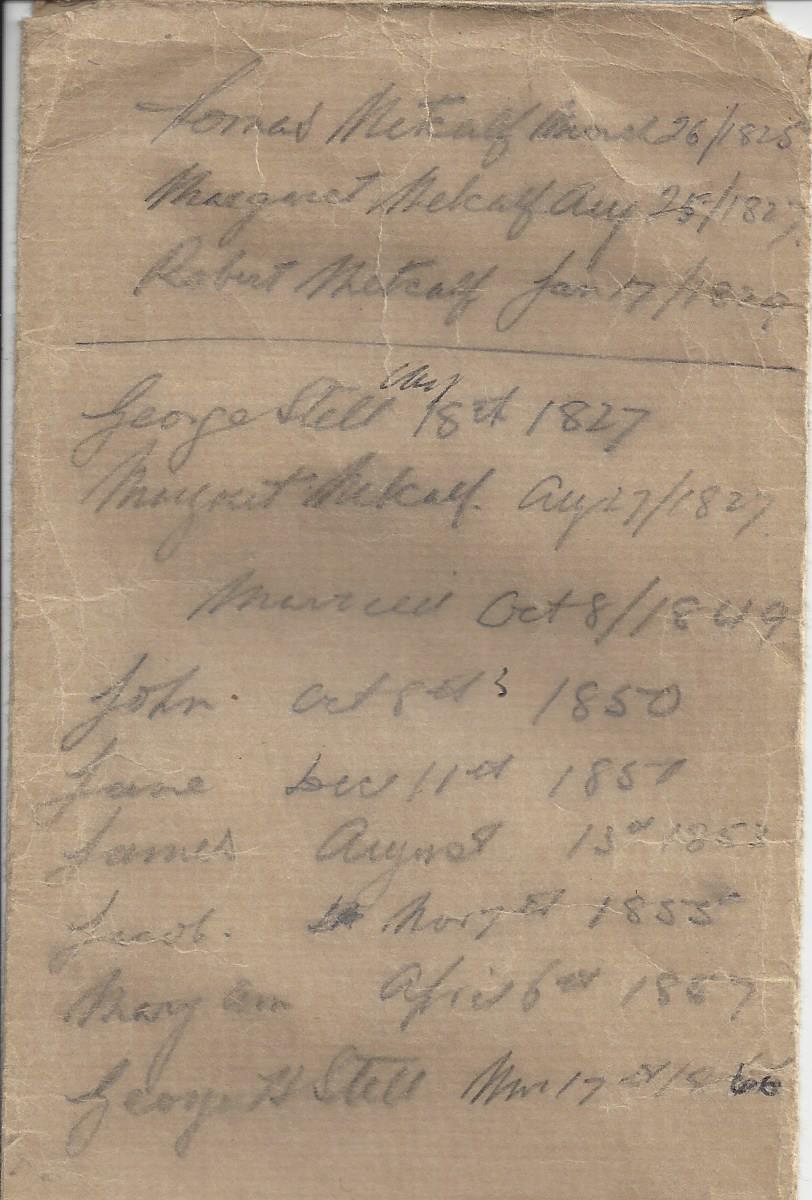 Tomas Metcalf March 26/1825
Margaret Metcalf Aug 25/1827
Robert Metcalf Jan 17/1829
George Stell Aug 18th 1827
Margret Metcalf. Aug 27/1827
Married Oct 8/1849
John Oct 8th 1850
Jane Dec 11th 1851
James August 13th 1853
Jacob. Nov 7th 1855
Mary Ann April 6th 1857
George H Stell 17th